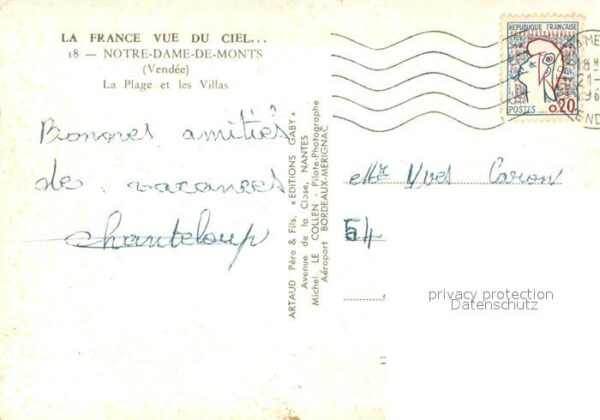 LA FRANCE VUE DU CIEL...
18 — NOTRE-DAME-DE-MONTS
(Vendée)
La Plage et les Villas
Bonnes amitiés
de vacances
Chanteloup
ARTAUD Père & Fils, «EDITIONS GABY»
Avenue de la Close, NANTES
Michel LE COLLEN - Pilote-Photographe
Aéroport BORDEAUX-MERIGNAC
REPUBLIQUE FRANÇAISE
POSTES 0,20
18H
21-
196
Mr Yves Caron
54
privacy protection
Datenschutz